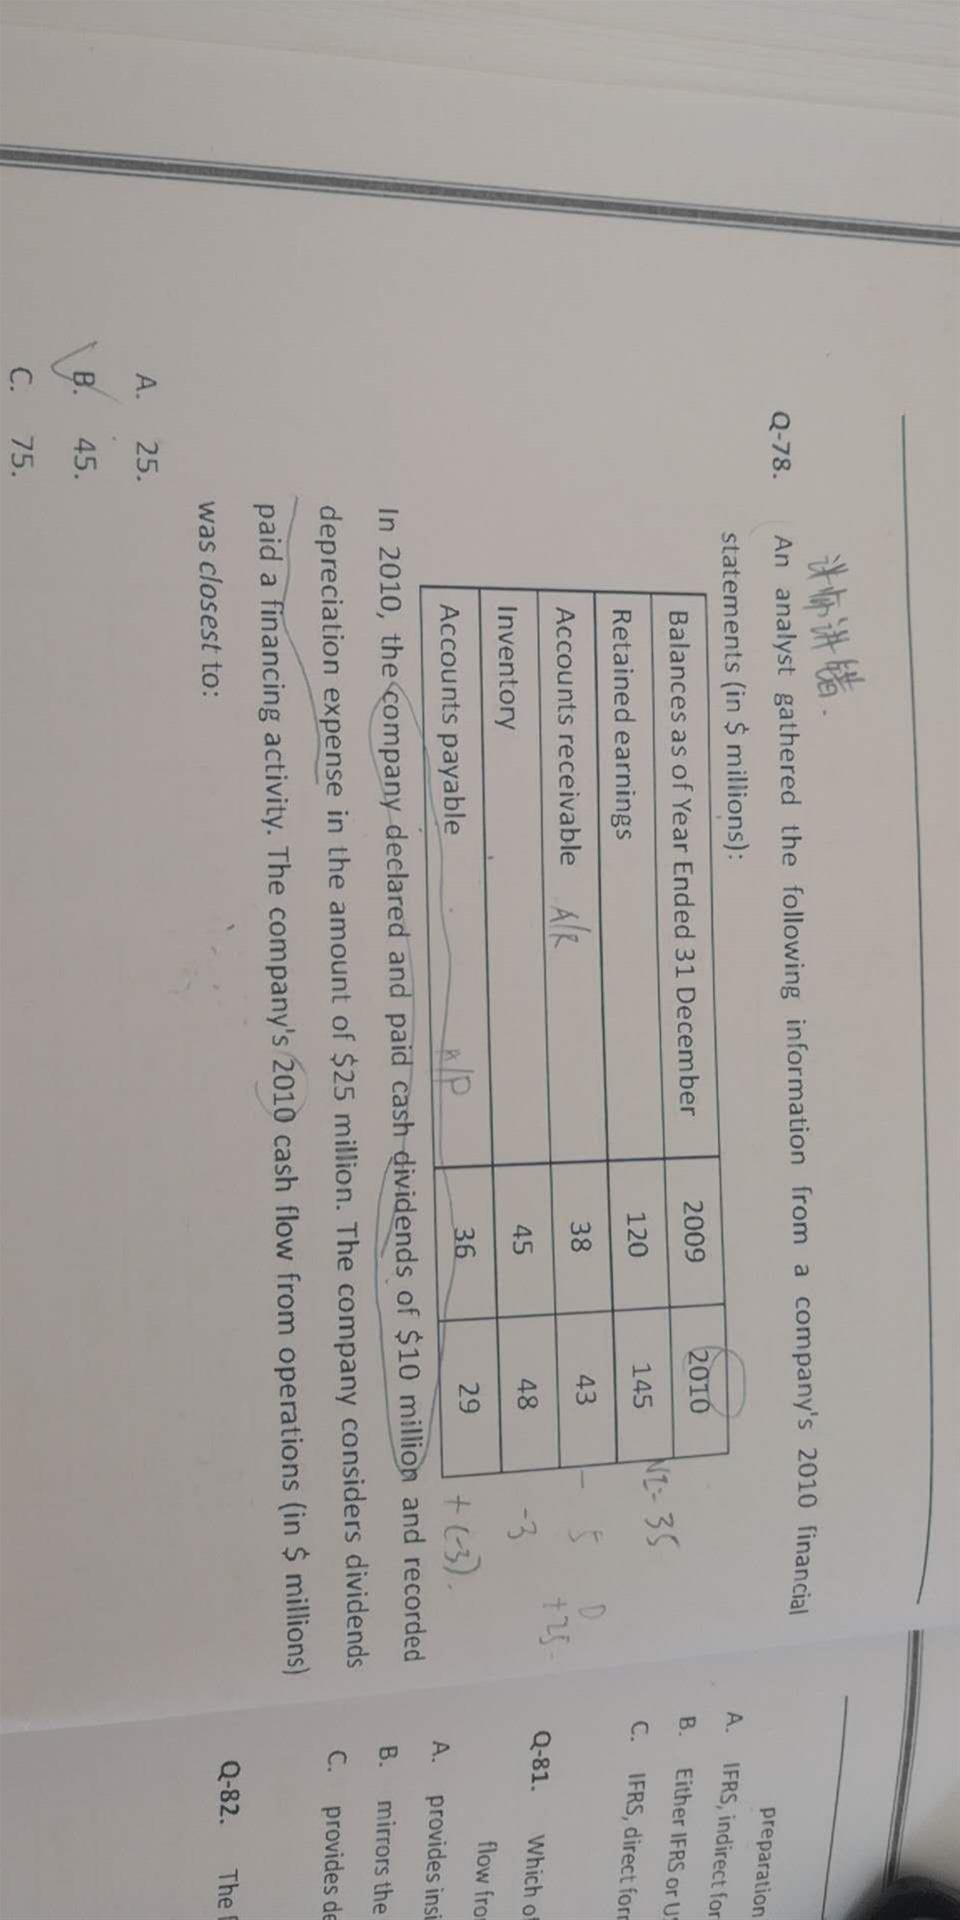 讲师讲错.
Q-78. An analyst gathered the following information from a company's 2010 financial
statements (in $ millions):
Balances as of Year Ended 31 December 2009 2010
Retained earnings 120 145 NI=35
Accounts receivable A/R 38 43 - 5 D
Inventory 45 48 -3 +25
Accounts payable A/P 36 29 + (-3).
In 2010, the company declared and paid cash dividends of $10 million and recorded
depreciation expense in the amount of $25 million. The company considers dividends
paid a financing activity. The company's 2010 cash flow from operations (in $ millions)
was closest to:
A. 25.
B. 45.
C. 75.
preparation
A. IFRS, indirect for
B. Either IFRS or U
C. IFRS, direct for
Q-81. Which o
flow fro
A. provides insi
B. mirrors the
C. provides de
Q-82. The